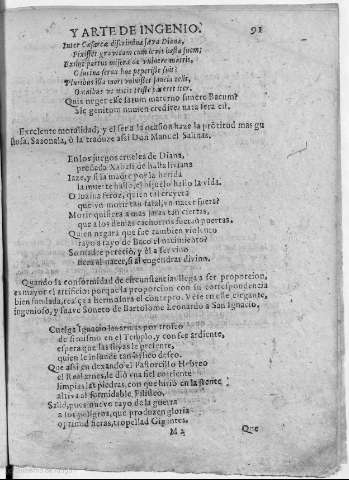 Y ARTE DE INGENIO. 91
Inter Cæsareæ discrimina sæva Dianæ,
Fixisset gravidam cum levis hasta suem;
Exiluit partus miseræ de vulnere matris,
O lucina ferox hoc peperisse fuit?
Pluribus illa mori voluisset saucia telis,
Omnibus ut natis triste pateret iter.
Quis neget esse satum materno funere Bacum?
Sic genitum numen credite: nata fera est.
Excelente moralidad, y el ser a la ocasion haze la prõtitud mas gu
stosa. Sazonala, ò la traduze assi Don Manuel Salinas.
En los juegos crueles de Diana,
preñada Xabali de hasta liviana
Iaze, y si la madre por la herida
la muerte hallò, el hijuelo hallò la vida.
O lucina feroz, quien tal creyera
que un morir tan fatal, un nacer fuera?
Morir quisiera a mas jaras tan ciertas,
que a los demas cachorros fueran puertas.
Quien negarà que fue tambien violento
rayo a rayo de Baco el nacimiento?
Su madre pereciò, y èl a ser vino
fiera al nacer, si al engendrar divino.
Quando la conformidad de circunstancias llega a ser proporcion,
es mayor el artificio; porque la proporcion con su correspondencia
bien fundada, realça y hermosea el concepto. Vese en este elegante,
ingenioso, y suave Soneto de Bartolome Leonardo a San Ignacio.
Cuelga Ignacio las armas por trofeo
de si mismo en el Templo, y con fee ardiente,
espera que las suyas le presente,
quien le infunde tan valiente deseo.
Que assi en dexando el Pastorcillo Hebreo
el Real arnes, le diò una fiel corriente
limpias las piedras, con que hiriò en la frente
altiva al formidable Filisteo.
Salid, pues nuevo rayo de la guerra
a los peligros, que producen gloria
oprimid fieras, tropellad Gigantes.
M 2
Que